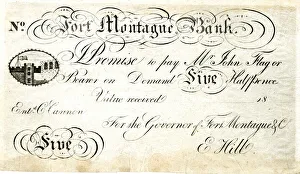 No Fort Montague Bank.
I Promise to pay Mr John Flag or
Bearer on Demand Five Halfpence
Value received 18
Entd C. Cannon
For the Governor of Fort Montague & C
Five E Hill